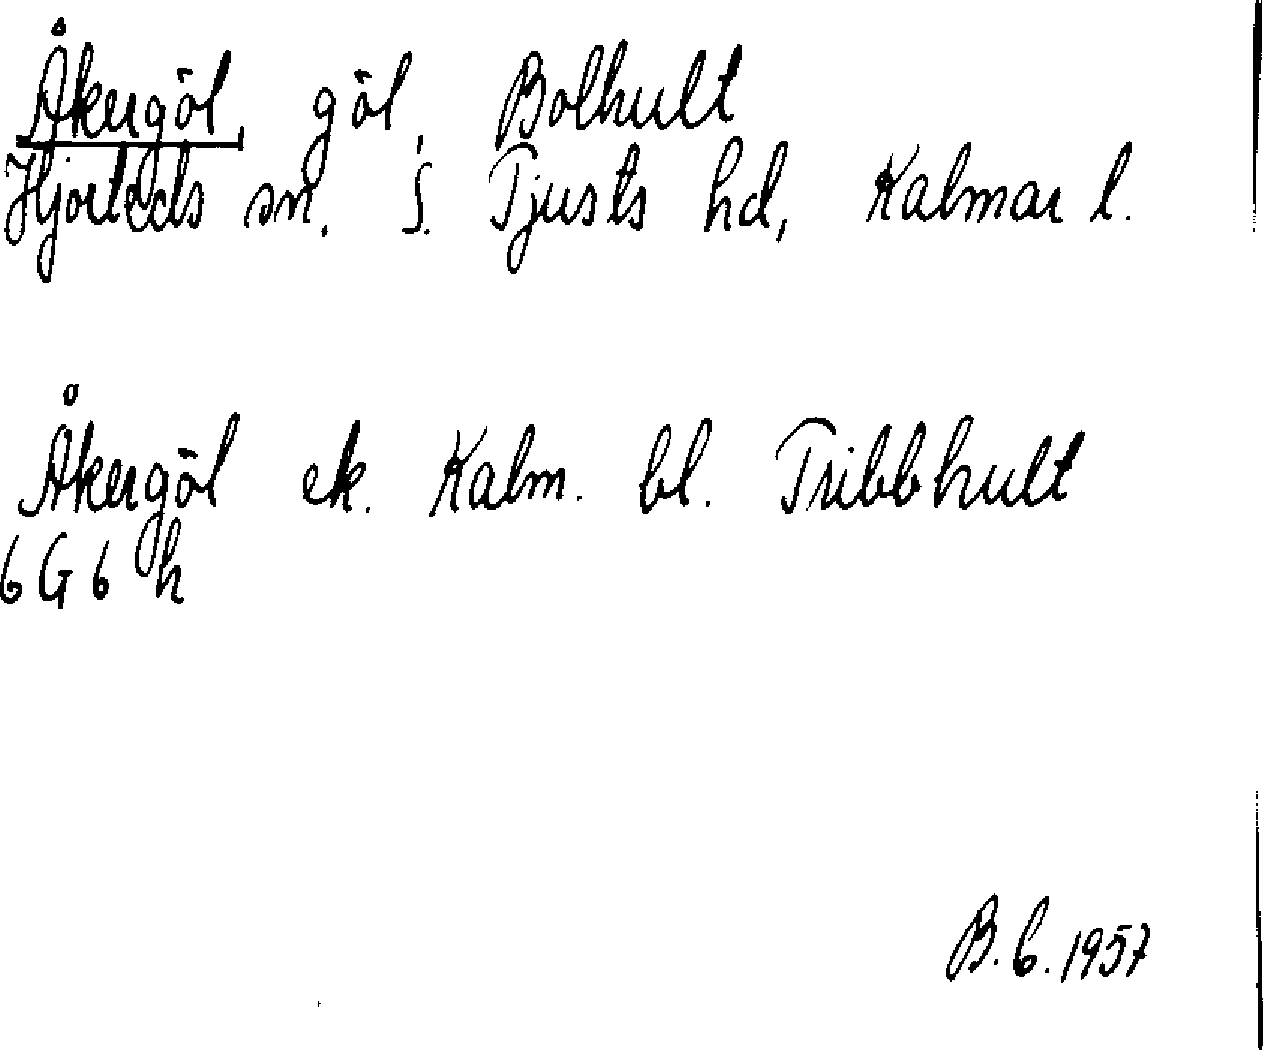 Åkergöl, göl, Bolhult
Hjorteds sn. S. Tjusts hd, Kalmar l.
Åkergöl ek. Kalm. bl. Tribbhult
6 G 6 h
B. G. 1957